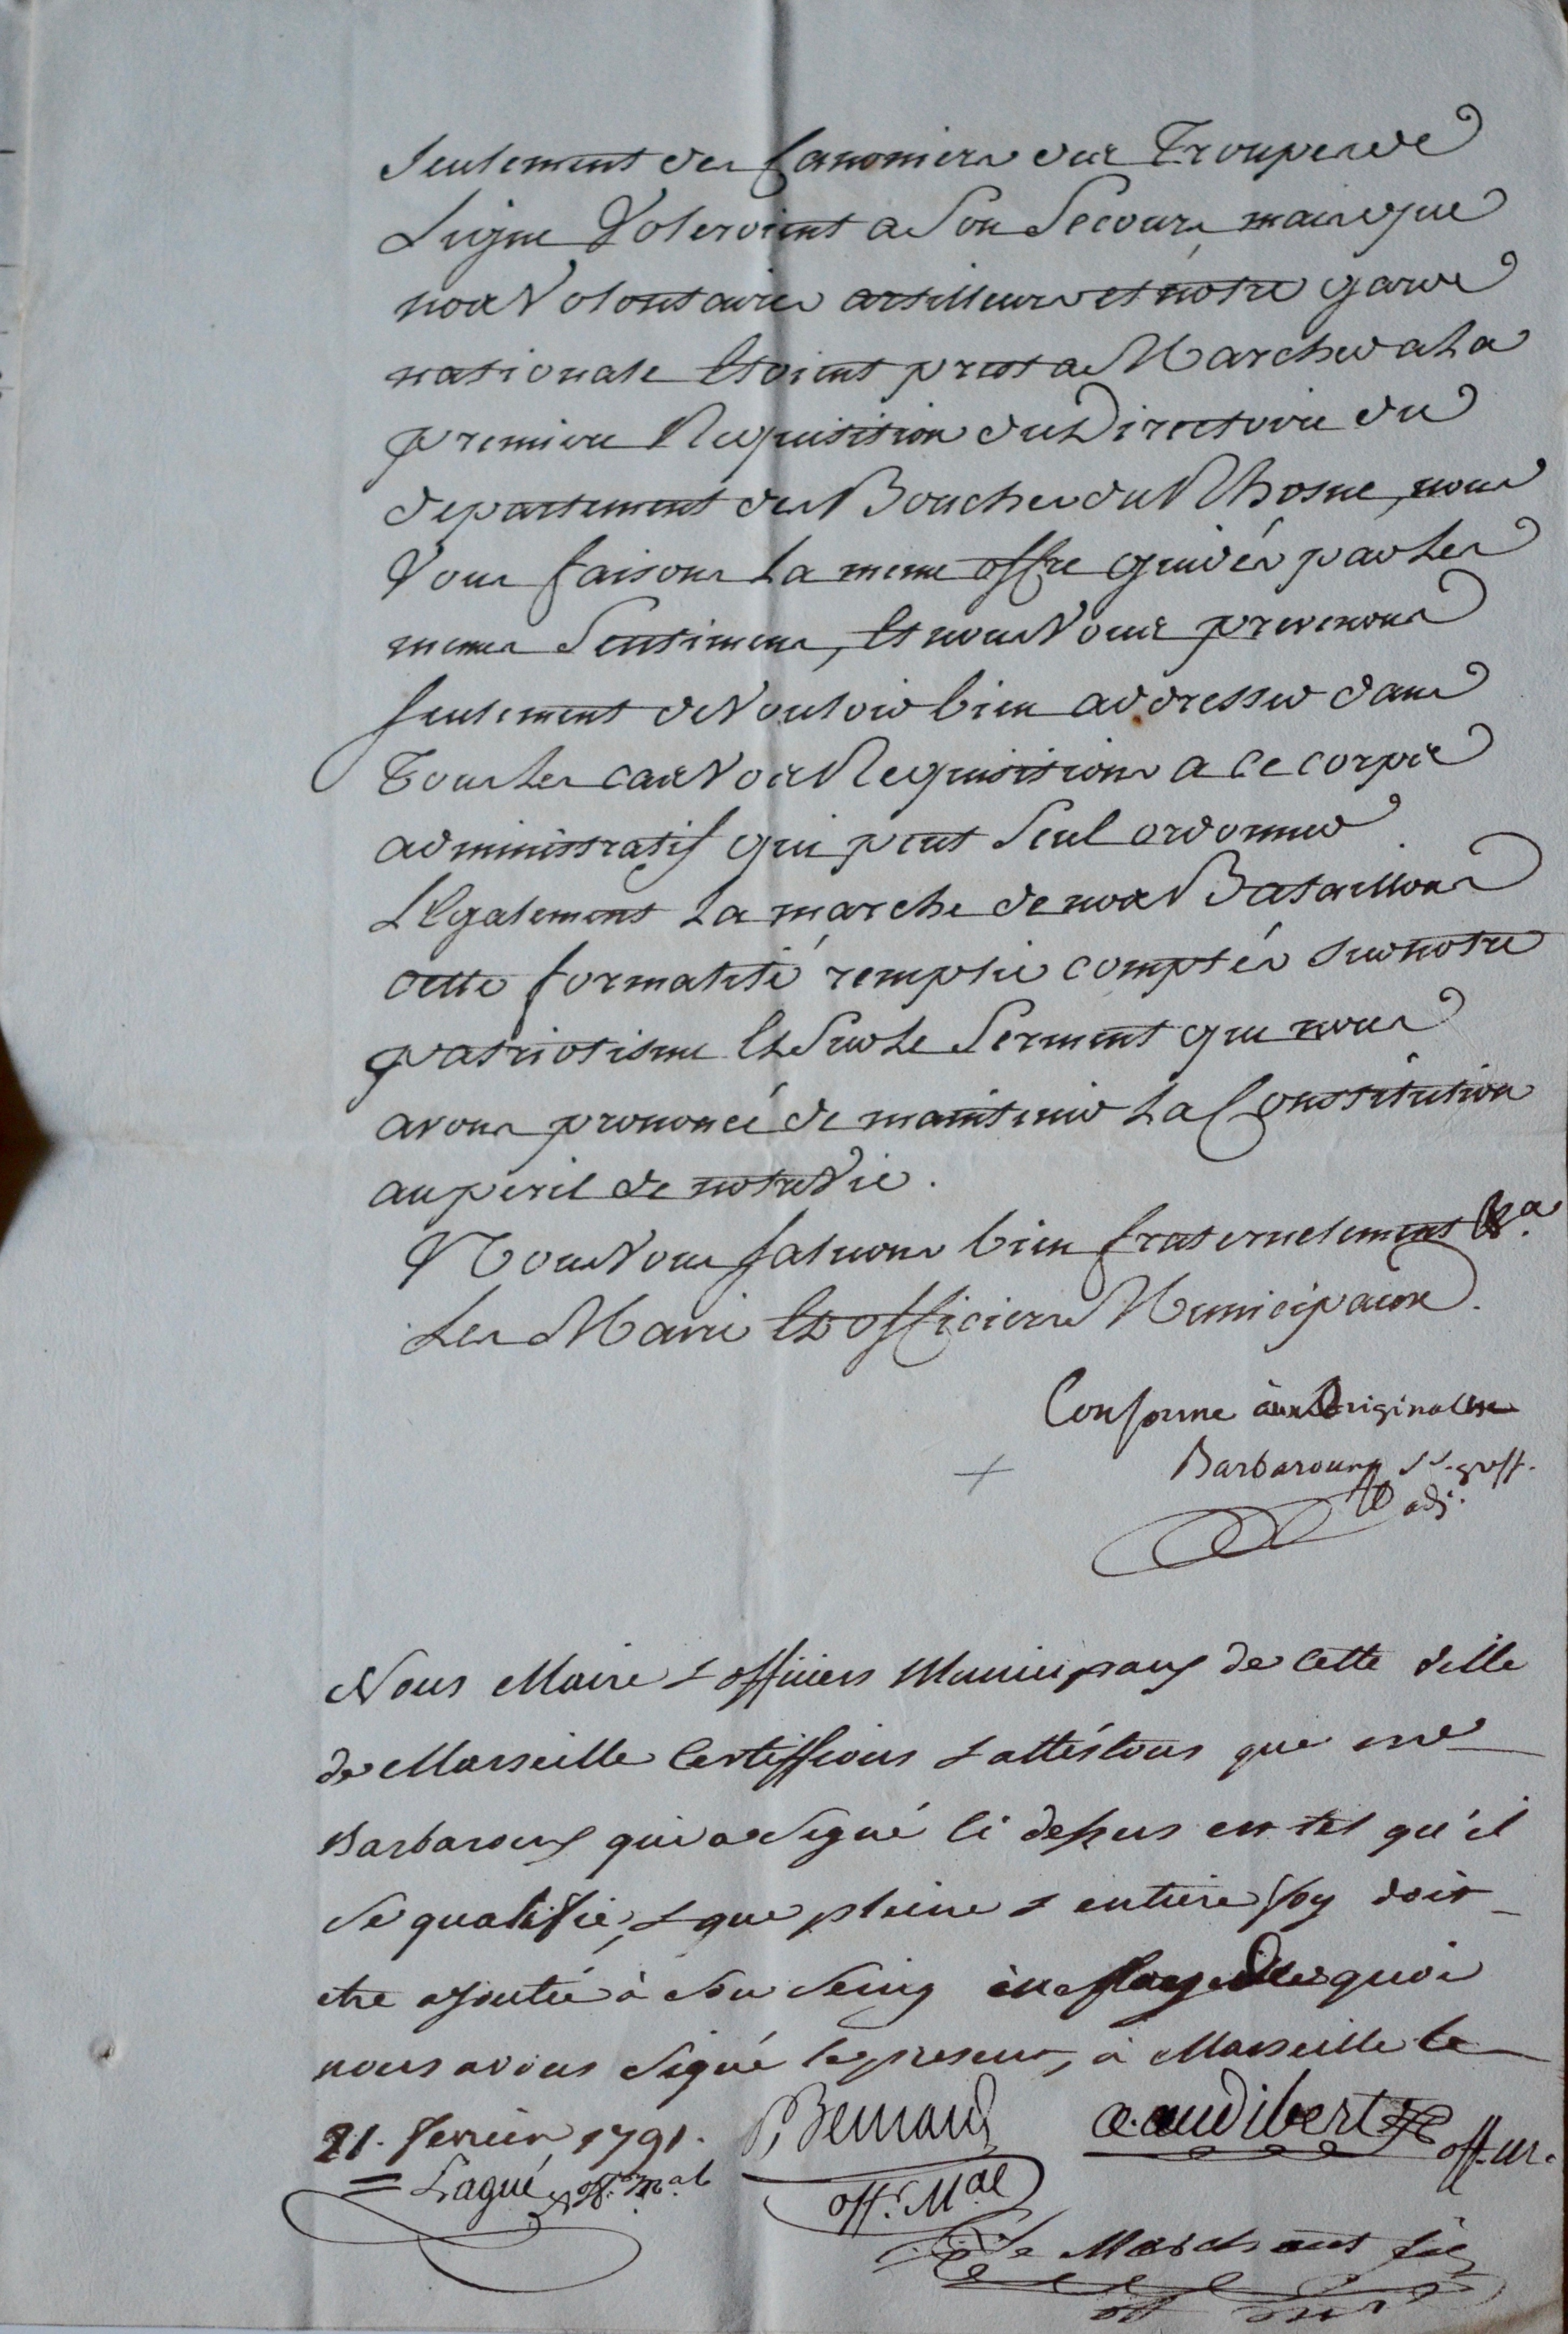 Seulement des Canoniers des Troupes de
Ligne Voleroient a Son Secours mais que
nos Volontaires artilleurs et notre garde
nationale Etoient prest a Marcher a La
premiere Requisition du Directoire du
departement des Bouches du Rhosne, nous
Vous faisons La meme offre guidés par Les
memes Sentimens, Et nous Vous prevenons
seulement de Vouloir bien addresser dans
Tous Les cas Vos Requisitions a ce corps
administratif qui peut Seul ordonner
LEgalement La marche de nos Bataillons
cette formalité remplie comptés sur notre
patriotisme Et Sur Le Serment que nous
avons prononcé de maintenir La Constitution
au peril de notre Vie.
Nous Vous saluons bien fraternelement &a.
Les Maire Et officiers Municipaux.
Conforme aux Originaux
Barbaroux s.-greff.
adj.
Nous Maire & officiers Municipaux de cette Ville
de Marseille Certiffions & attéstons que Me
Barbaroux qui a Signé Ci dessus est tel qu'il
Se qualifie, & que pleine & entiere foy doit
etre ajoutée à Son Seing en foy de quoi
nous avons Signé le present, à Marseille le
21. fevrier 1791.
P. Bernard
off. Mal
a. audibert
off. m.
Lagué off. mal
Le Marchant
off mal